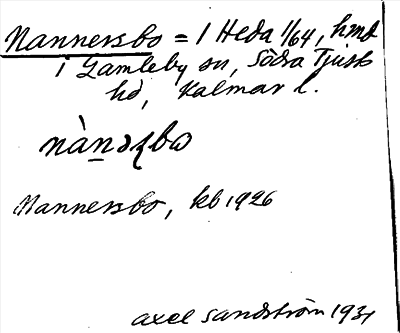 Nannersbo = 1 Heda 1/64, hmd
i Gamleby sn, Södra Tjusts
hd, Kalmar l.
nànəʂbω
Nannersbo, kb 1926
Axel Sandström 1931